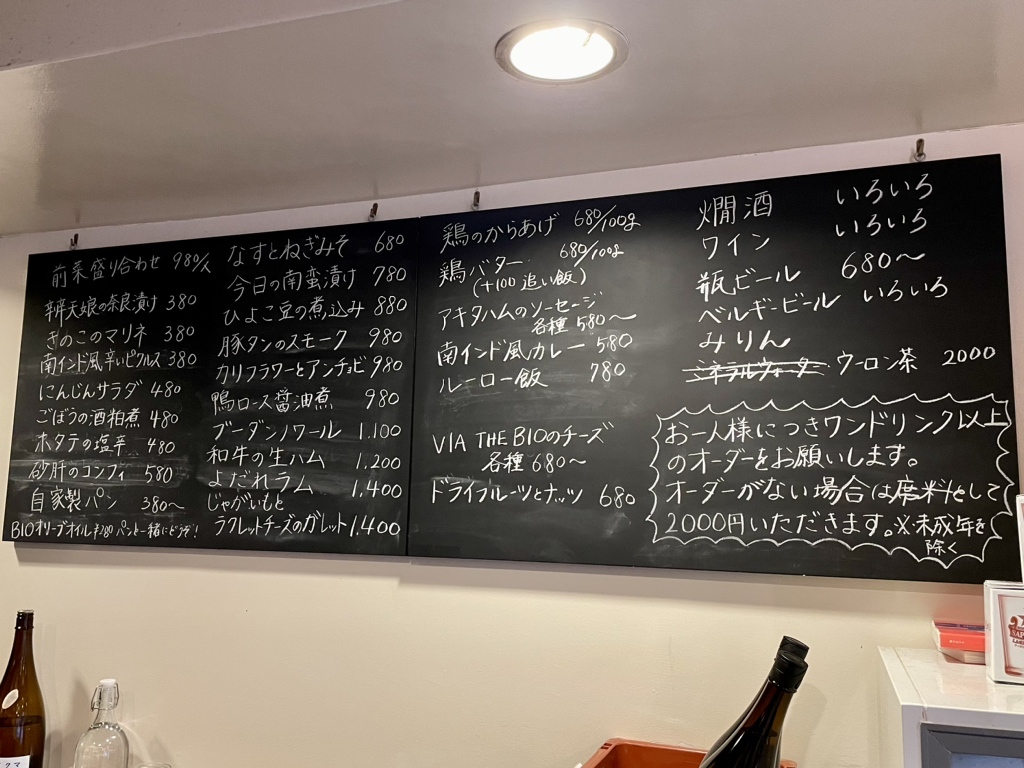 前菜盛り合わせ 980/人
弁天娘の奈良漬け 380
きのこのマリネ 380
南インド風辛いピクルス 380
にんじんサラダ 480
ごぼうの酒粕煮 480
ホタテの塩辛 480
砂肝のコンフィ 580
自家製パン 380〜
BIOオリーブオイル¥280 パンと一緒にどうぞ!
なすとねぎみそ 680
今日の南蛮漬け 780
ひよこ豆の煮込み 880
豚タンのスモーク 980
カリフラワーとアンチョビ 980
鴨ロース醤油煮 980
ブーダンノワール 1.100
和牛の生ハム 1.200
よだれラム 1,400
じゃがいもと
ラクレットチーズのガレット 1,400
鶏のからあげ 680/100g
鶏バター 680/100g
(+100 追い飯)
アキタハムのソーセージ
各種 580〜
南インド風カレー 580
ルーロー飯 780
VIA THE BIOのチーズ
各種 680〜
ドライフルーツとナッツ 680
燗酒 いろいろ
ワイン いろいろ
瓶ビール 680〜
ベルギービール いろいろ
みりん
ミネラルウォーター ウーロン茶 2000
お一人様につきワンドリンク以上
のオーダーをお願いします。
オーダーがない場合は座料として
2000円いただきます。※未成年を
除く